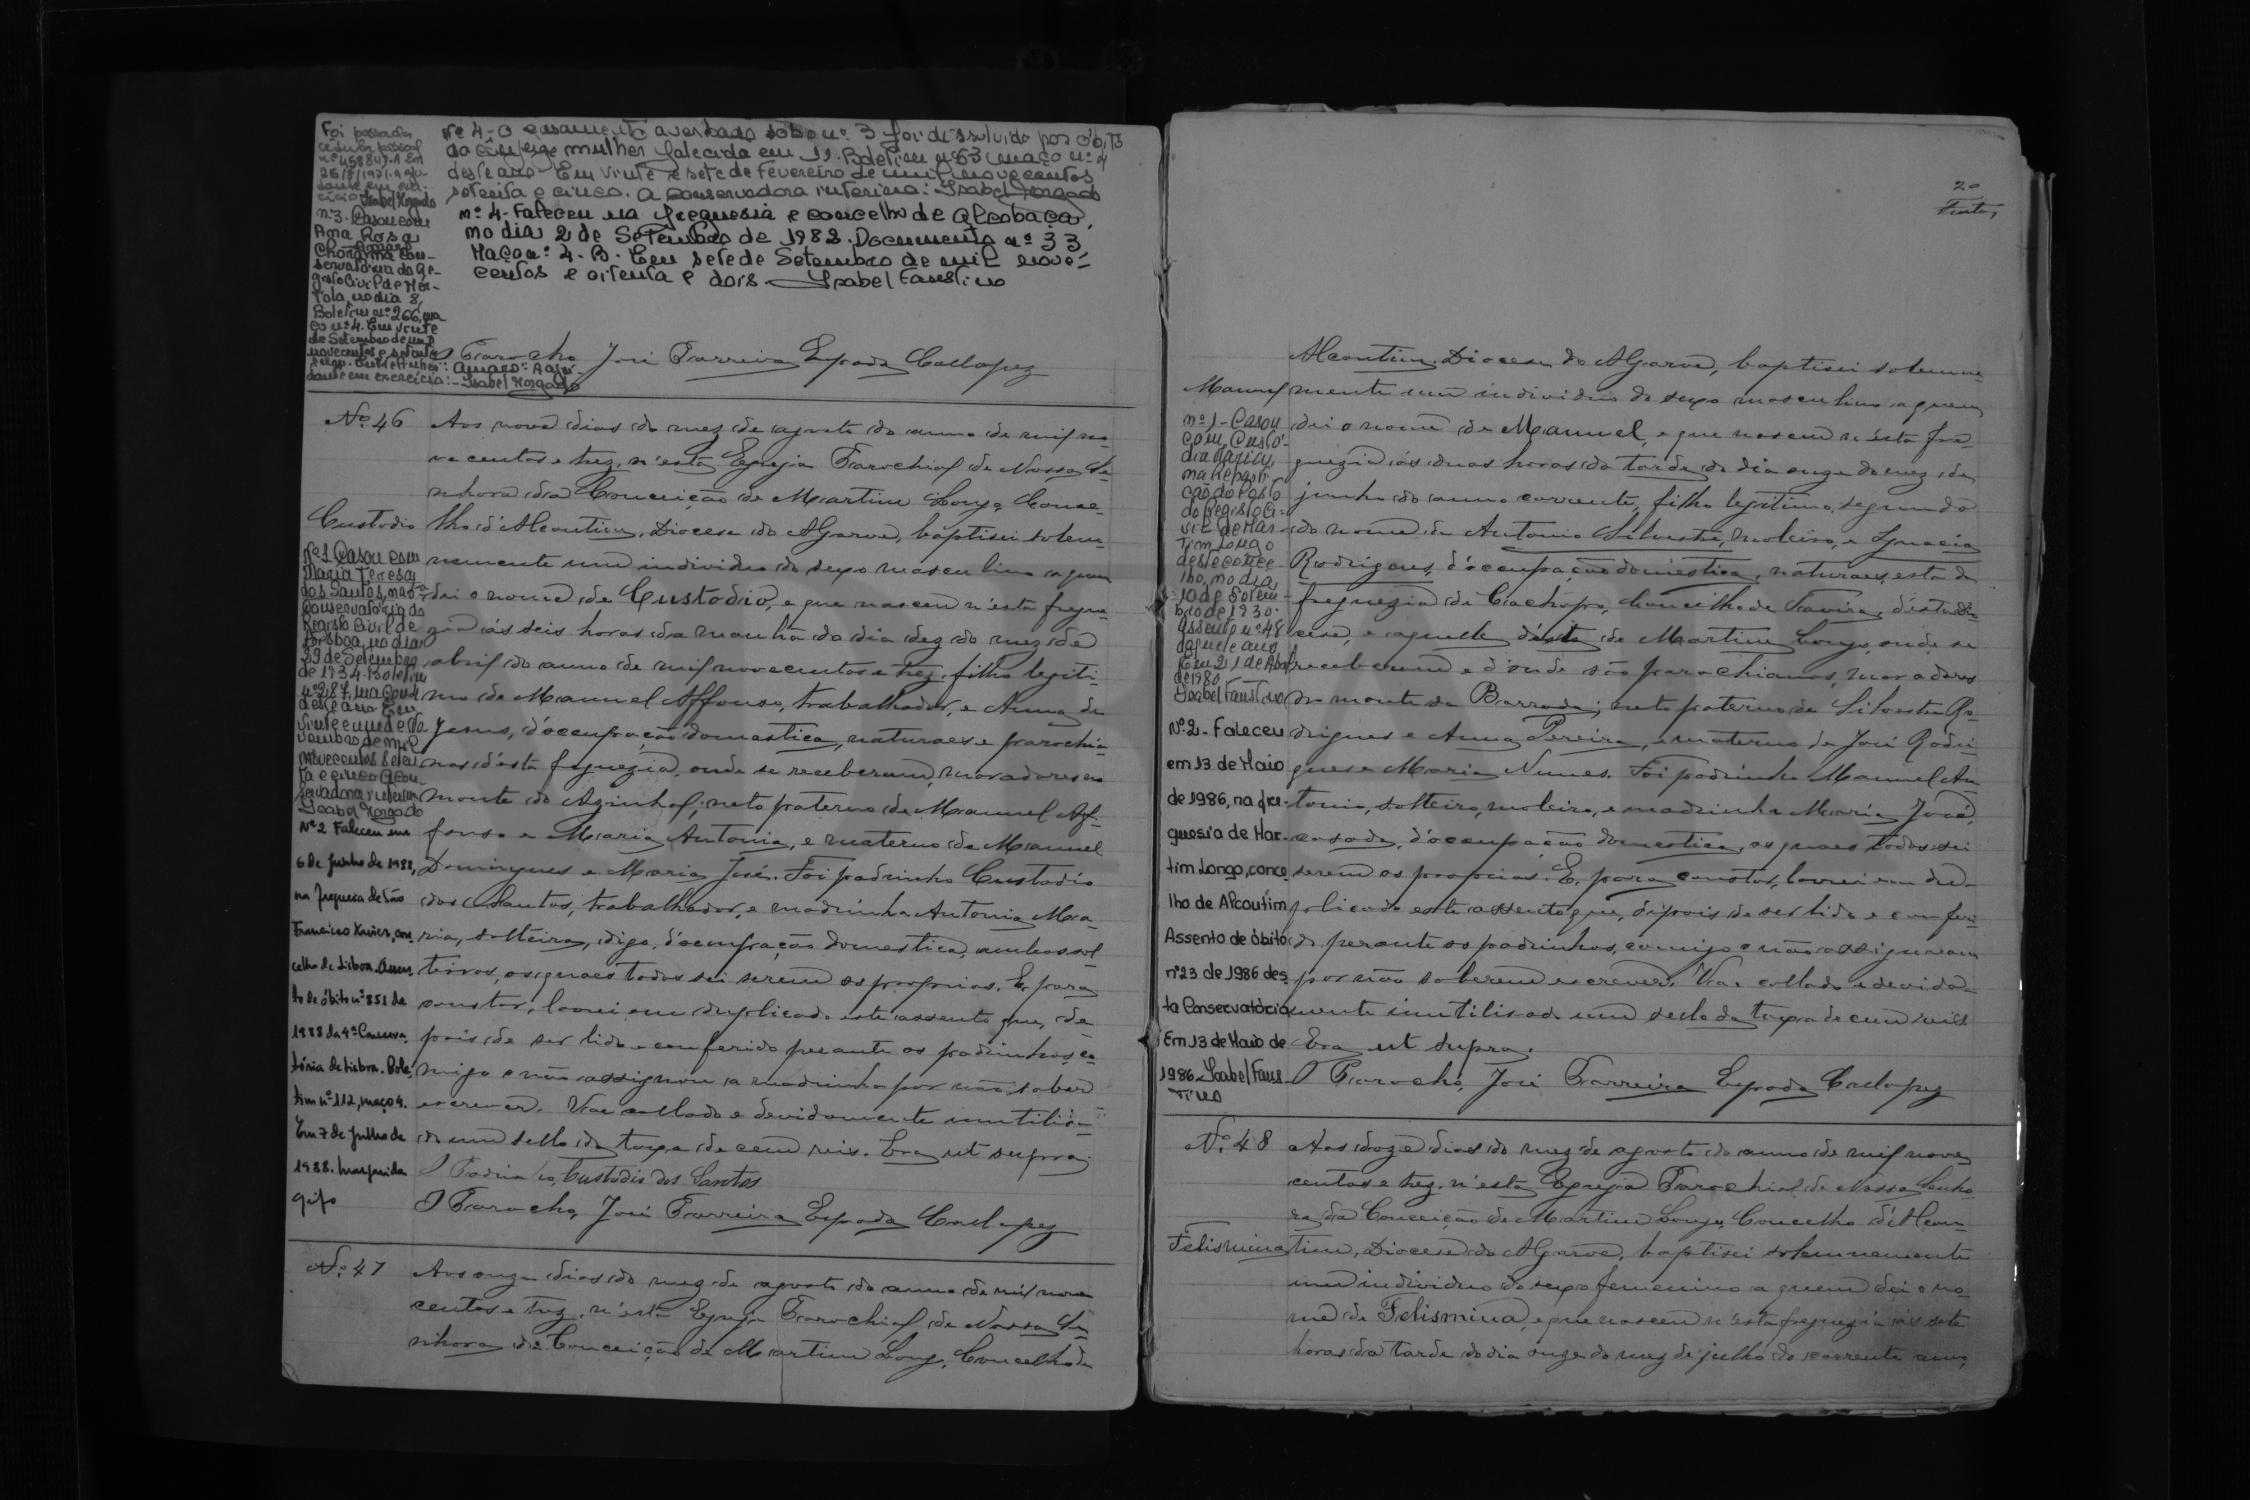 Foi passada
cedula pessoal
nº 458849-A Em
26/8/1971. A aju-
dante em exer-
cicio Isabel Morgado
nº 3. Casou com
Ana Rosa
Amaro
Conservatoria do Re-
gisto Civil de Mér-
tola, no dia 8,
Boletim nº 266, ma
ço nº 4. Em vinte
de Setembro de mil
novecentos e setenta
: Amaro: A aju-
dante em exercício: - Isabel Morgado
Nº 4 - O casamento averbado sob o nº 3 foi dissolvido por óbito
do cônjuge mulher falecida em 11. Boletim nº 63 maço nº 4
deste ano. Em vinte e sete de Fevereiro de mil novecentos
setenta e cinco. A Conservadora interina: Isabel Morgado
nº 4 - Faleceu na freguesia e concelho de Alcobaça,
no dia 2 de Setembro de 1982. Documento nº 33
Maço nº 4-B. Em sete de Setembro de mil nove-
centos e oitenta e dois - Isabel Faustino
O Parocho José Parreira Espada Callapez
Nº 46
Custodio
Nº 1 Casou com
Maria Teresa
dos Santos, na
Conservatória do
Registo Civil de
Lisboa, no dia
29 de Setembro
de 1934. Boletim
nº 287, maço nº 4
deste ano. Em
vinte e um de No-
vembro de mil
novecentos seten-
ta e cinco. A Con-
servadora interina
Isabel Morgado
Nº 2 Faleceu em
6 de Junho de 1988,
na freguesia de São
Francisco Xavier, con-
celho de Lisboa. Assen-
to de óbito nº 851 de
1988 da 4ª Conserva-
tória de Lisboa. Bole-
tim nº 112, maço 4.
Em 7 de Julho de
1988. Margarida
Aos nove dias do mez de agosto do anno de mil no-
ve centos e trez, n'esta Egreja Parochial de Nossa Se-
nhora da Conceição de Martim Longo, Conce-
lho d'Alcoutim, Diocese do Algarve, baptisei solem-
nemente um individuo do sexo masculino a quem
dei o nome de Custodio, e que nasceu n'esta fregue-
zia ás seis horas da manhã do dia dez do mez de
abril do anno de mil novecentos e trez, filho legiti-
mo de Manuel Affonso, trabalhador, e Anna de
Jesus, d'occupação domestica, naturaes e parochia-
nos d'esta freguezia, onde se receberam, moradores no
monte do Azinhal; neto paterno de Manuel Af-
fonso e Maria Antonia, e materno de Manuel
Domingues e Maria José. Foi padrinho Custodio
dos Santos, trabalhador, e madrinha Antonia Ma-
ria, solteira, digo, d'occupação domestica, ambos sol-
teiros, os quaes todos sei serem os proprios. E para
constar, lavrei em duplicado este assento que, de-
pois de ser lido e conferido perante os padrinhos, co-
migo e não assignou a madrinha por não saber
escrever. Vae collado e devidamente inutilisa-
do um sello da taxa de cem reis. Era ut supra.
O Padrinho, Custodio dos Santos
O Parocho, José Parreira Espada Callapez
Nº 47
Aos onze dias do mez de agosto do anno de mil nove
centos e trez, n'esta Egreja Parochial de Nossa Se-
nhora da Conceição de Martim Longo, Concelho de
20
Vinte,
Manuel
nº 1 - Casou
com Custó-
dia Maria,
na Reparti-
ção do Posto
do Registo Ci-
vil de Mar-
tim Longo
deste conce-
lho, no dia
10 de Setem-
bro de 1930.
Assento nº 48
daquele ano
Em 21 de Abril
de 1980
Isabel Faustino
Nº 2 - Faleceu
em 13 de Maio
de 1986, na fre-
guesia de Mar-
tim Longo, conce-
lho de Alcoutim
Assento de óbito
nº 23 de 1986 des-
ta Conservatória
Em 13 de Maio de
1986 - Isabel Faus-
tino
Alcoutim, Diocese do Algarve, baptisei solemne-
mente um individuo do sexo masculino a quem
dei o nome de Manuel, e que nasceu n'esta fre-
guezia ás duas horas da tarde do dia onze do mez de
junho do anno corrente, filho legitimo, segundo
do nome de Antonio Silvestre, moleiro, e Ignacia
Rodrigues, d'occupação domestica, naturaes, esta da
freguezia de Cachopo, Concelho de Tavira, d'esta Dio-
cese, e aquelle d'esta de Martim Longo, onde se
receberam e d'onde são parochianos, moradores
no monte da Barrada; neto paterno de Silvestre Ro-
drigues e Anna Pereira, e materno de José Rodri-
gues e Maria Nunes. Foi padrinho Manuel An-
tonio, solteiro, moleiro, e madrinha Maria José,
casada, d'occupação domestica, os quaes todos sei
serem os proprios. E, para constar, lavrei em du-
plicado este assento que, depois de ser lido e conferi-
do perante os padrinhos, comigo o não assignaram
por não saberem escrever. Vae collado e devida-
mente inutilisado um sello da taxa de cem reis.
Era ut supra.
O Parocho, José Parreira Espada Callapez
Nº 48
Felismina
Aos doze dias do mez de agosto do anno de mil nove
centos e trez, n'esta Egreja Parochial de Nossa Senho-
ra da Conceição de Martim Longo, Concelho d'Alcou-
tim, Diocese do Algarve, baptisei solemnemente
um individuo do sexo femenino a quem dei o no-
me de Felismina, e que nasceu n'esta freguezia ás sete
horas da tarde do dia onze do mez de julho do corrente anno,